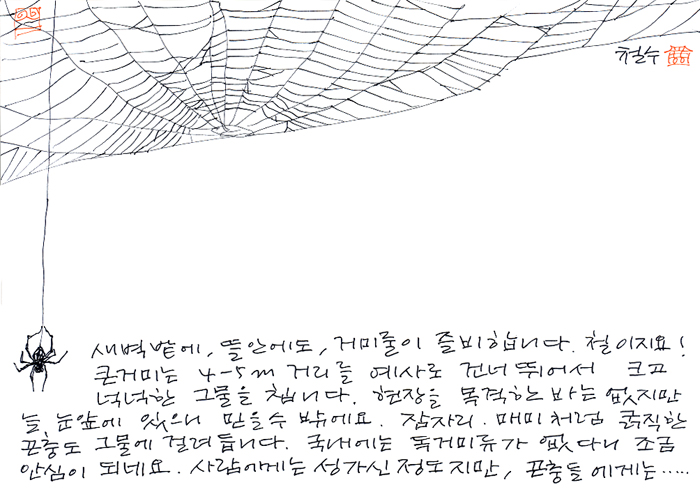 철수
새벽밭에, 뜰안에도, 거미줄이 즐비합니다. 철이지요!
큰거미는 4-5m 거리를 예사로 건너뛰어서 크고
넉넉한 그물을 칩니다. 현장을 목격한 바는 없지만
늘, 눈앞에 있으니 믿을수 밖에요. 잠자리. 매미처럼 굵직한
곤충도 그물에 걸려듭니다. 국내에는 독거미류가 없다니 조금
안심이 되네요. 사람에게는 성가신 정도지만, 곤충들에게는.....